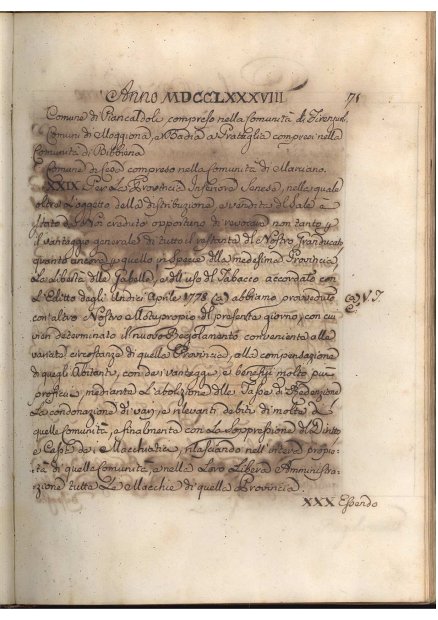 Anno MDCCLXXXVIII 71
Comune di Piancaldoli compreso nella Comunità di Firenzuola
Comuni di Moggiona, e Badia a Prataglia compresi nella
Comunità di Bibbiena
Comune di compreso nella Comunità di Marciano.
XXIX Per la Provincia Inferiore Senese, nella quale
oltre l'oggetto della distribuzione, e vendita di Sale è
stato da Noi creduto opportuno di revocar non tanto p
il vantaggio generale di tutto il restante del Nostro Granducato
quanto ancora p quello in specie della medesima Provincia,
la libertà delle Gabelle, e dell'uso di Tabacco, accordato con
l'Editto degli Undici Aprile 1778 (a) abbiamo provveduto
con altro Nostro Motuproprio del presente giorno, con cui
vien determinato il nuovo Regolamento conveniente alle
variate circostanze di quella Provincia, alla compensazione
di quegli Abitanti, con dei vantaggi, e benefizi molto più
proficui, mediante l'abolizione delle Tasse di Redenzione
la condonazione di varj, e rilevanti debiti di molte di
quelle Comunità, e finalmente con la soppressione del Diritto
e Cassa dei Macchiatici, rilasciando nell'intera proprie-
tà di quelle Comunità, e nella loro libera Amministra-
zione tutte le Macchie di quella Provincia.
(a) V. I.
XXX Essendo